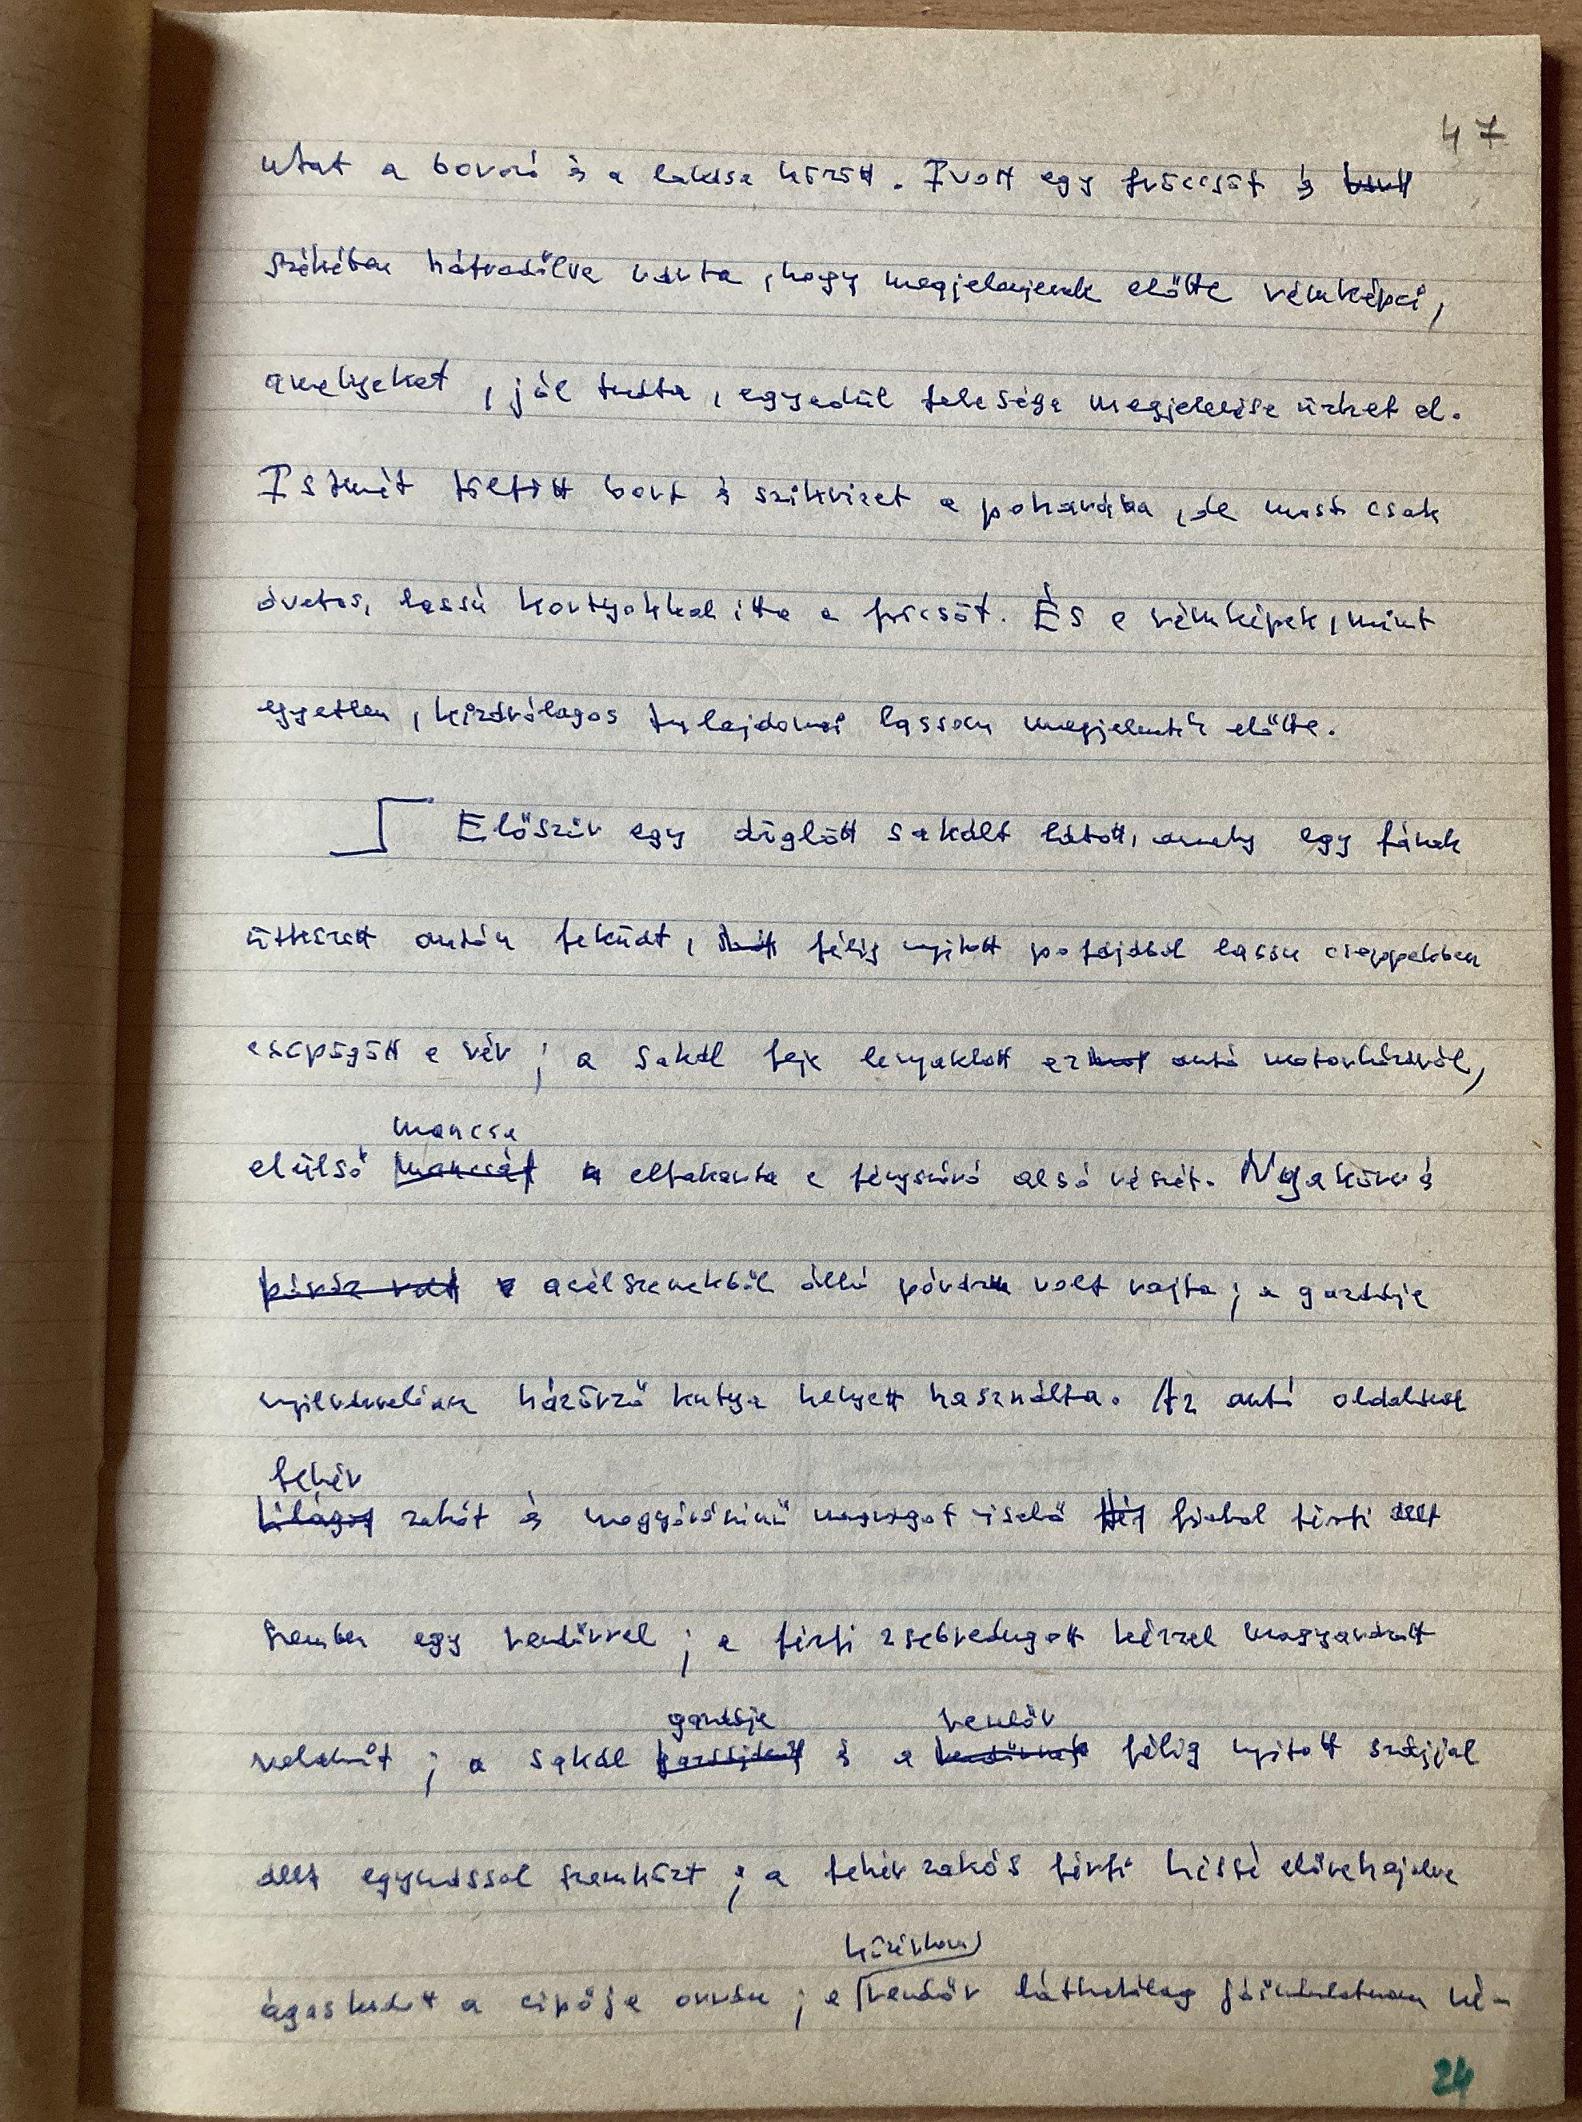 47
utat a borozó és a lakása között. Ivott egy fröccsöt és
székében hátradőlve várta, hogy megjelenjenek előtte rémképei,
amelyeket, jól tudta, egyedül felesége megjelenése űzhet el.
Ismét töltött bort és szikvizet a poharába, de most csak
óvatos, lassú kortyokkal itta a fröcsöt. És a rémképek, mint
egyetlen, kizárólagos tulajdonai lassan megjelentek előtte.
Először egy döglött sakált látott, amely egy fának
ütközött autón feküdt, félig nyitott pofájából lassu cseppekben
csöpögött a vér; a sakál feje lenyaklott az autó motorházáról,
mancsa
elülső mancsát eltakarta a fényszóró alsó részét. Nyakörv és
póráz volt acélszemekből álló póráz volt rajta; a gazdája
nyilvánvalóan házőrző kutya helyett használta. Az autó oldalánál
fehér
világos zakót és mogyorószínű nadrágot viselő fiatal férfi állt
szemben egy rendőrrel; a férfi zsebredugott kézzel magyarázott
gazdája rendőr
valamit; a sakál és a félig nyitott szájjal
állt egymással szemközt; a fehér zakós férfi kissé előrehajolva
közírban
ágaskodott a cipője orrán; a rendőr láthatólag jóindulatúan ké-
24